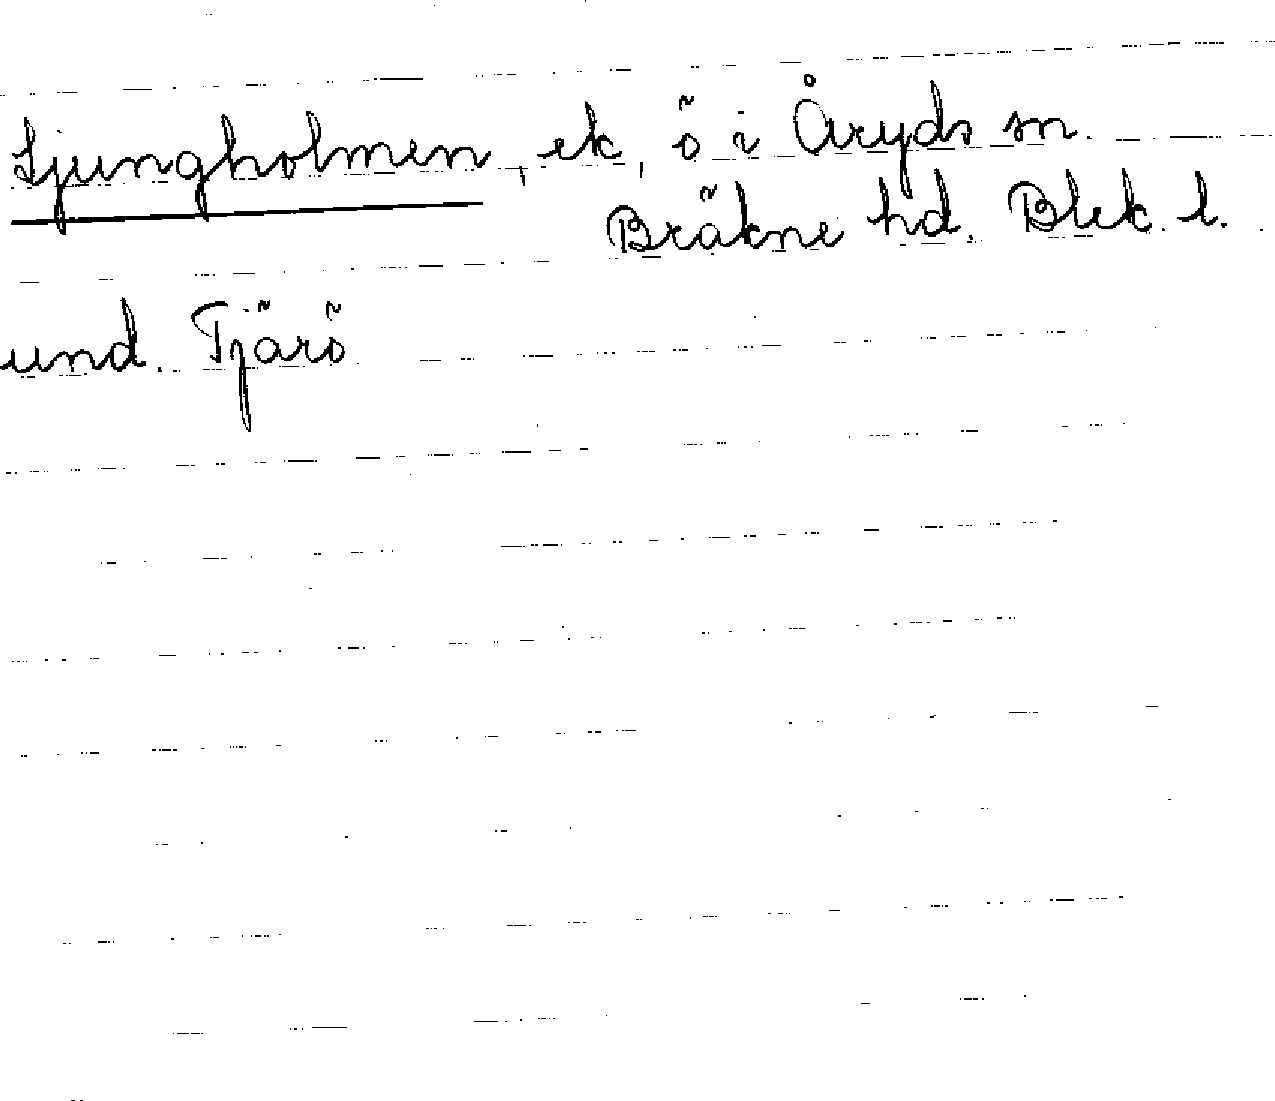 Ljungholmen, ek, ö i Åryds sn.
Bräkne hd. Blek. l.
und. Tjärö